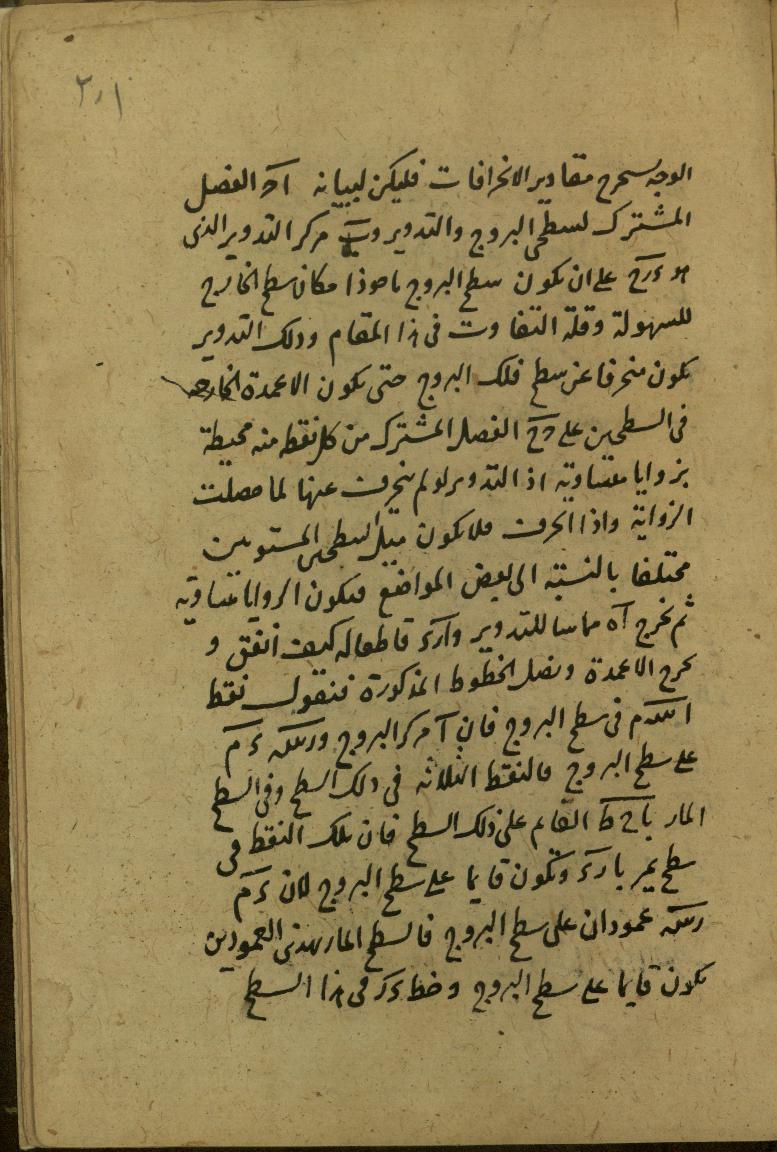 ٢٠١
الوجه يستخرج مقادير الانحرافات فليكن لبيانه الفصل
المشترك لسطحى البروج والتدوير و مركز التدوير الذى
هو على ان يكون سطح البروج ماخوذا مكان سطح الخارج
للسهولة وقلة التفاوت فى هذا المقام وذلك التدوير
يكون منحرفا عن سطح فلك البروج حتى يكون الاعمدة الخارجه
فى السطحين على الفصل المشترك من كل نقطه منه محيطة
بزوايا متساوية اذ التدوير لو لم ينحرف عنها لما حصلت
الزواية واذا انحرف فلا يكون ميل السطحين المستويين
مختلفا بالنسبة الى بعض المواضع فيكون الزوايا متساوية
ثم نخرج آه مماسا للتدوير و قاطعا له كيف اتفق و
نخرج الاعمدة ونصل الخطوط المذكورة فنقول نقط
فى سطح البروج فان آ مركز البروج و
على سطح البروج فالنقط الثلاثه فى ذلك السطح وفى السطح
المار القايم على ذلك السطح فان تلك النقط فى
سطح يمر ويكون قايما على سطح البروج لان
عمودان على سطح البروج فالسطح المار بهذى العمودين
يكون قايما على سطح البروج وخط فى هذا السطح